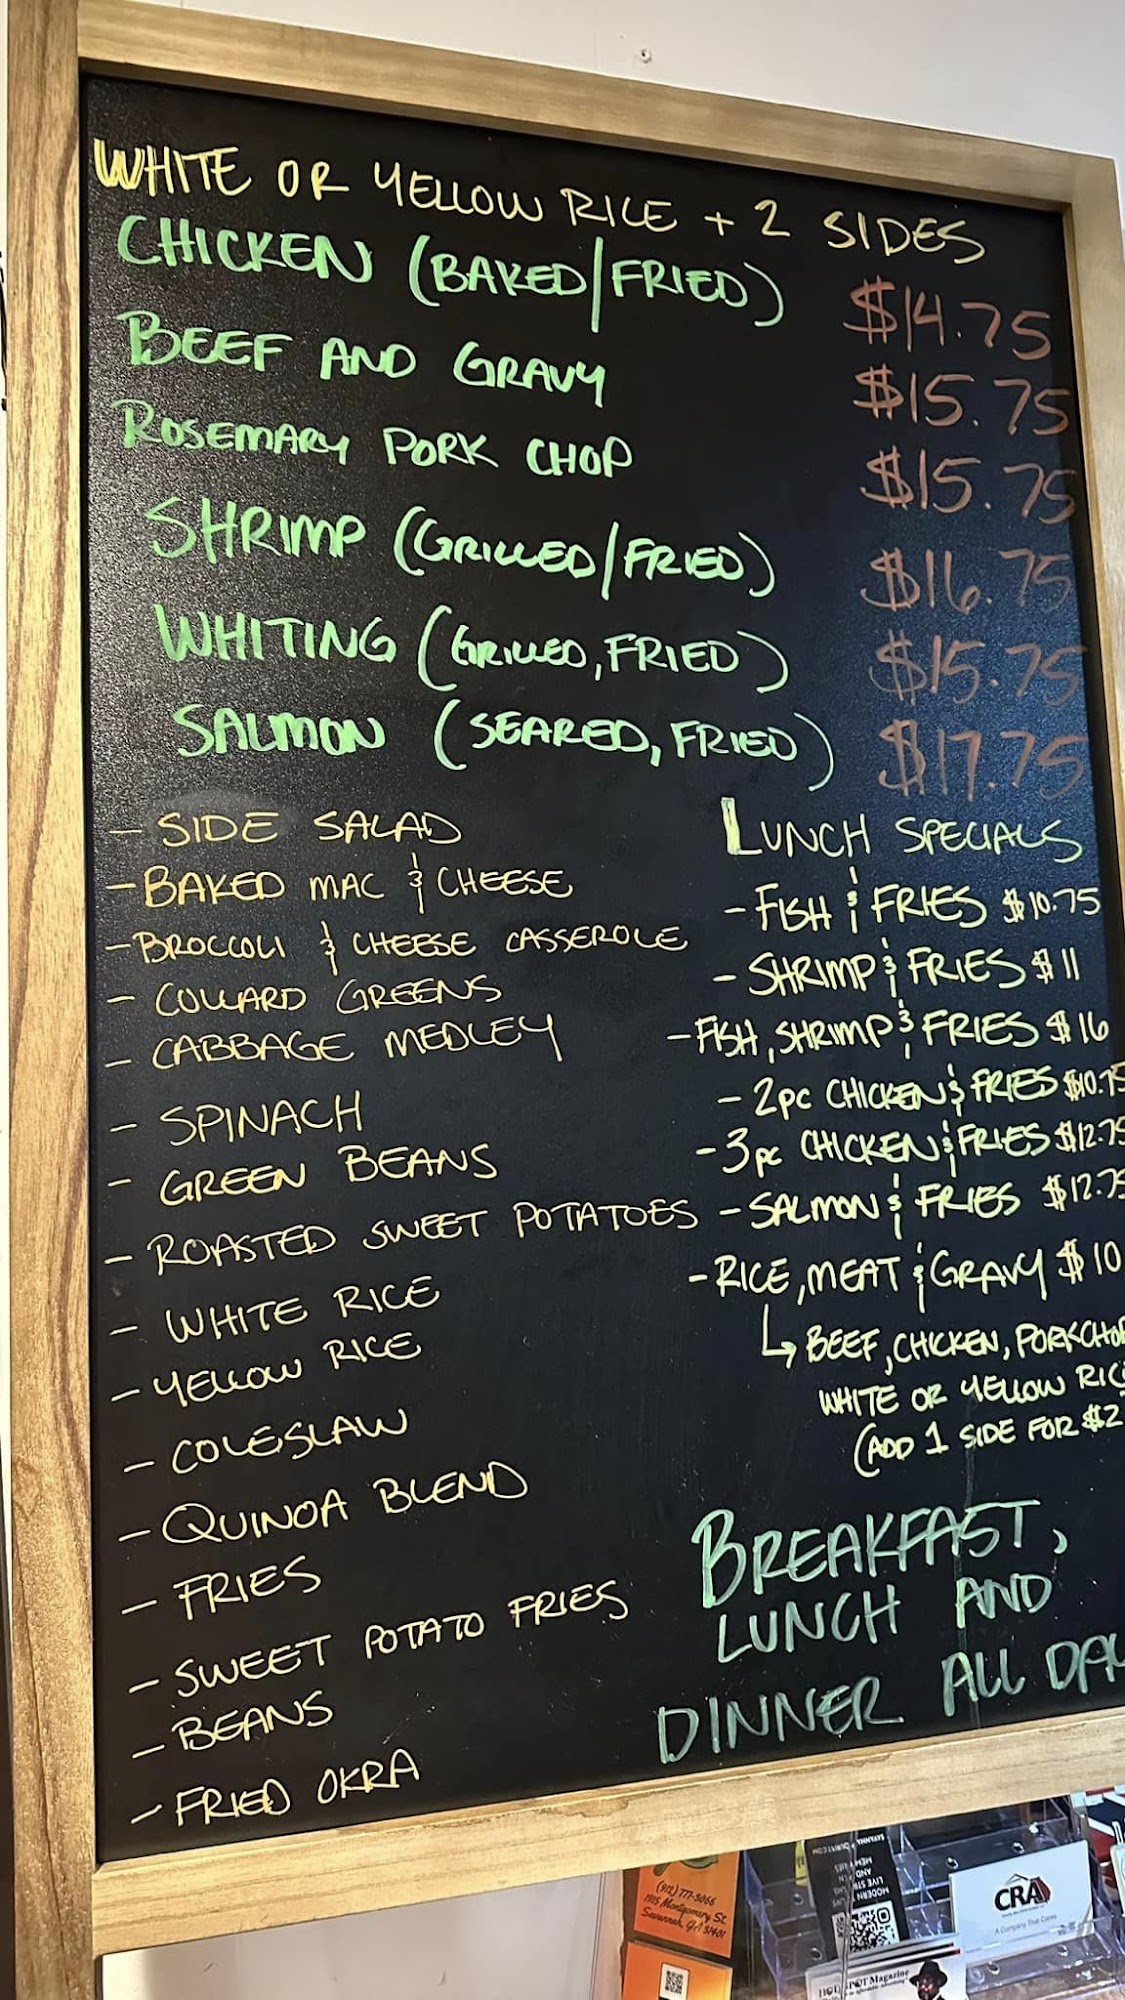 WHITE OR YELLOW RICE + 2 SIDES
CHICKEN (BAKED/FRIED) $14.75
BEEF AND GRAVY $15.75
ROSEMARY PORK CHOP $15.75
SHRIMP (GRILLED/FRIED) $16.75
WHITING (GRILLED, FRIED) $15.75
SALMON (SEARED, FRIED) $17.75
- SIDE SALAD
- BAKED MAC & CHEESE
- BROCCOLI & CHEESE CASSEROLE
- COLLARD GREENS
- CABBAGE MEDLEY
- SPINACH
- GREEN BEANS
- ROASTED SWEET POTATOES
- WHITE RICE
- YELLOW RICE
- COLESLAW
- QUINOA BLEND
- FRIES
- SWEET POTATO FRIES
- BEANS
- FRIED OKRA
LUNCH SPECIALS
- FISH & FRIES $10.75
- SHRIMP & FRIES $11
- FISH, SHRIMP & FRIES $16
- 2pc CHICKEN & FRIES $10.75
- 3pc CHICKEN & FRIES $12.75
- SALMON & FRIES $12.75
- RICE, MEAT & GRAVY $10
↳ BEEF, CHICKEN, PORKCHOP
WHITE OR YELLOW RICE
(ADD 1 SIDE FOR $2
BREAKFAST,
LUNCH AND
DINNER ALL DAY
(912) 777-3066
1915 Montgomery St.
Savannah, GA 31401
MODERN
LIVE
AND
CRA
A Company That Cares
HOTSPOT Magazine